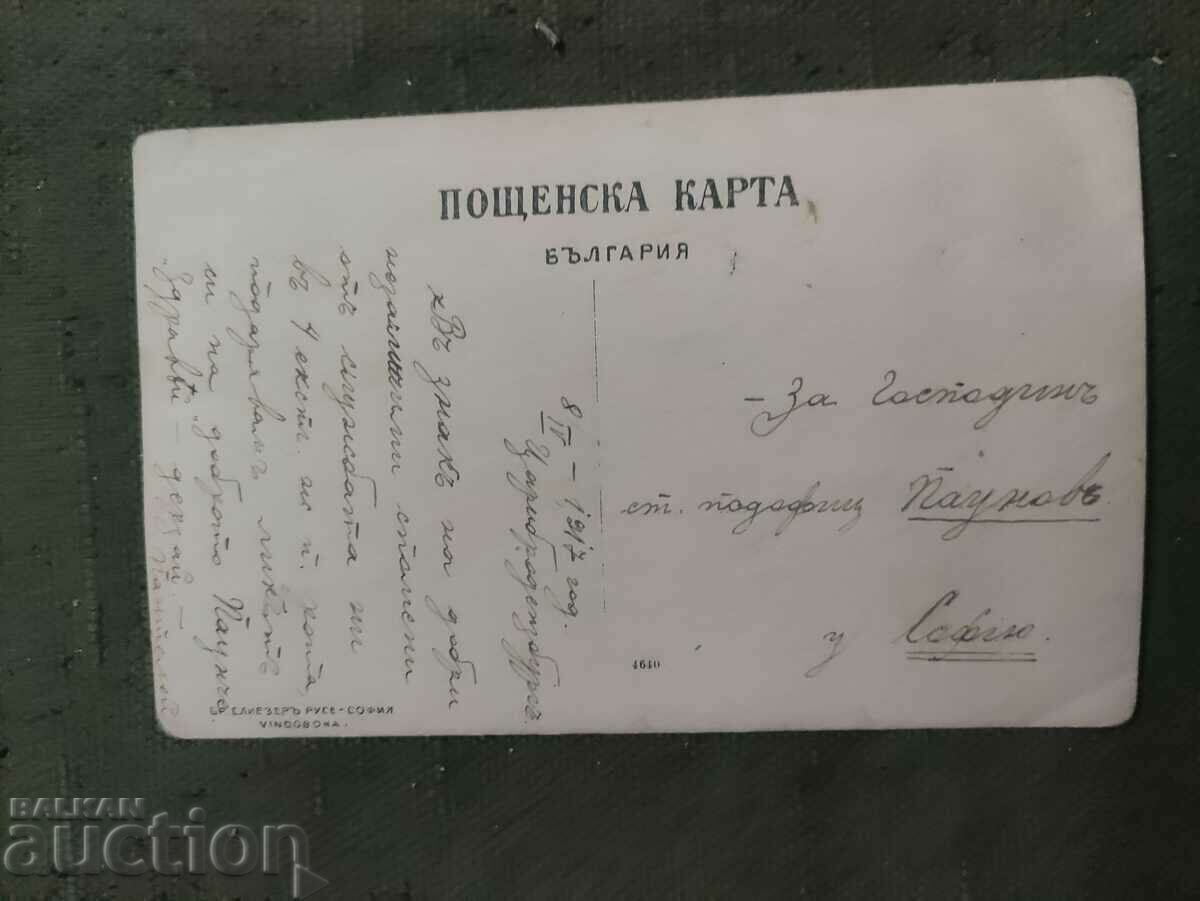 ПОЩЕНСКА КАРТА
БЪЛГАРИЯ
8/IV – 1917 год.
Царибродъ
хВъ знакъ на добри
спомени
отъ службата ни
въ 4 п. кота,
подарявамъ
си на доброто Паунче
"Здравѣй –
– За Господинъ
ст. подофиц Пауновъ
у София.
4640
БР ЕЛИЕЗЕРЪ РУСЕ–СОФИЯ
VINDOBONA.
BALKAN
auction